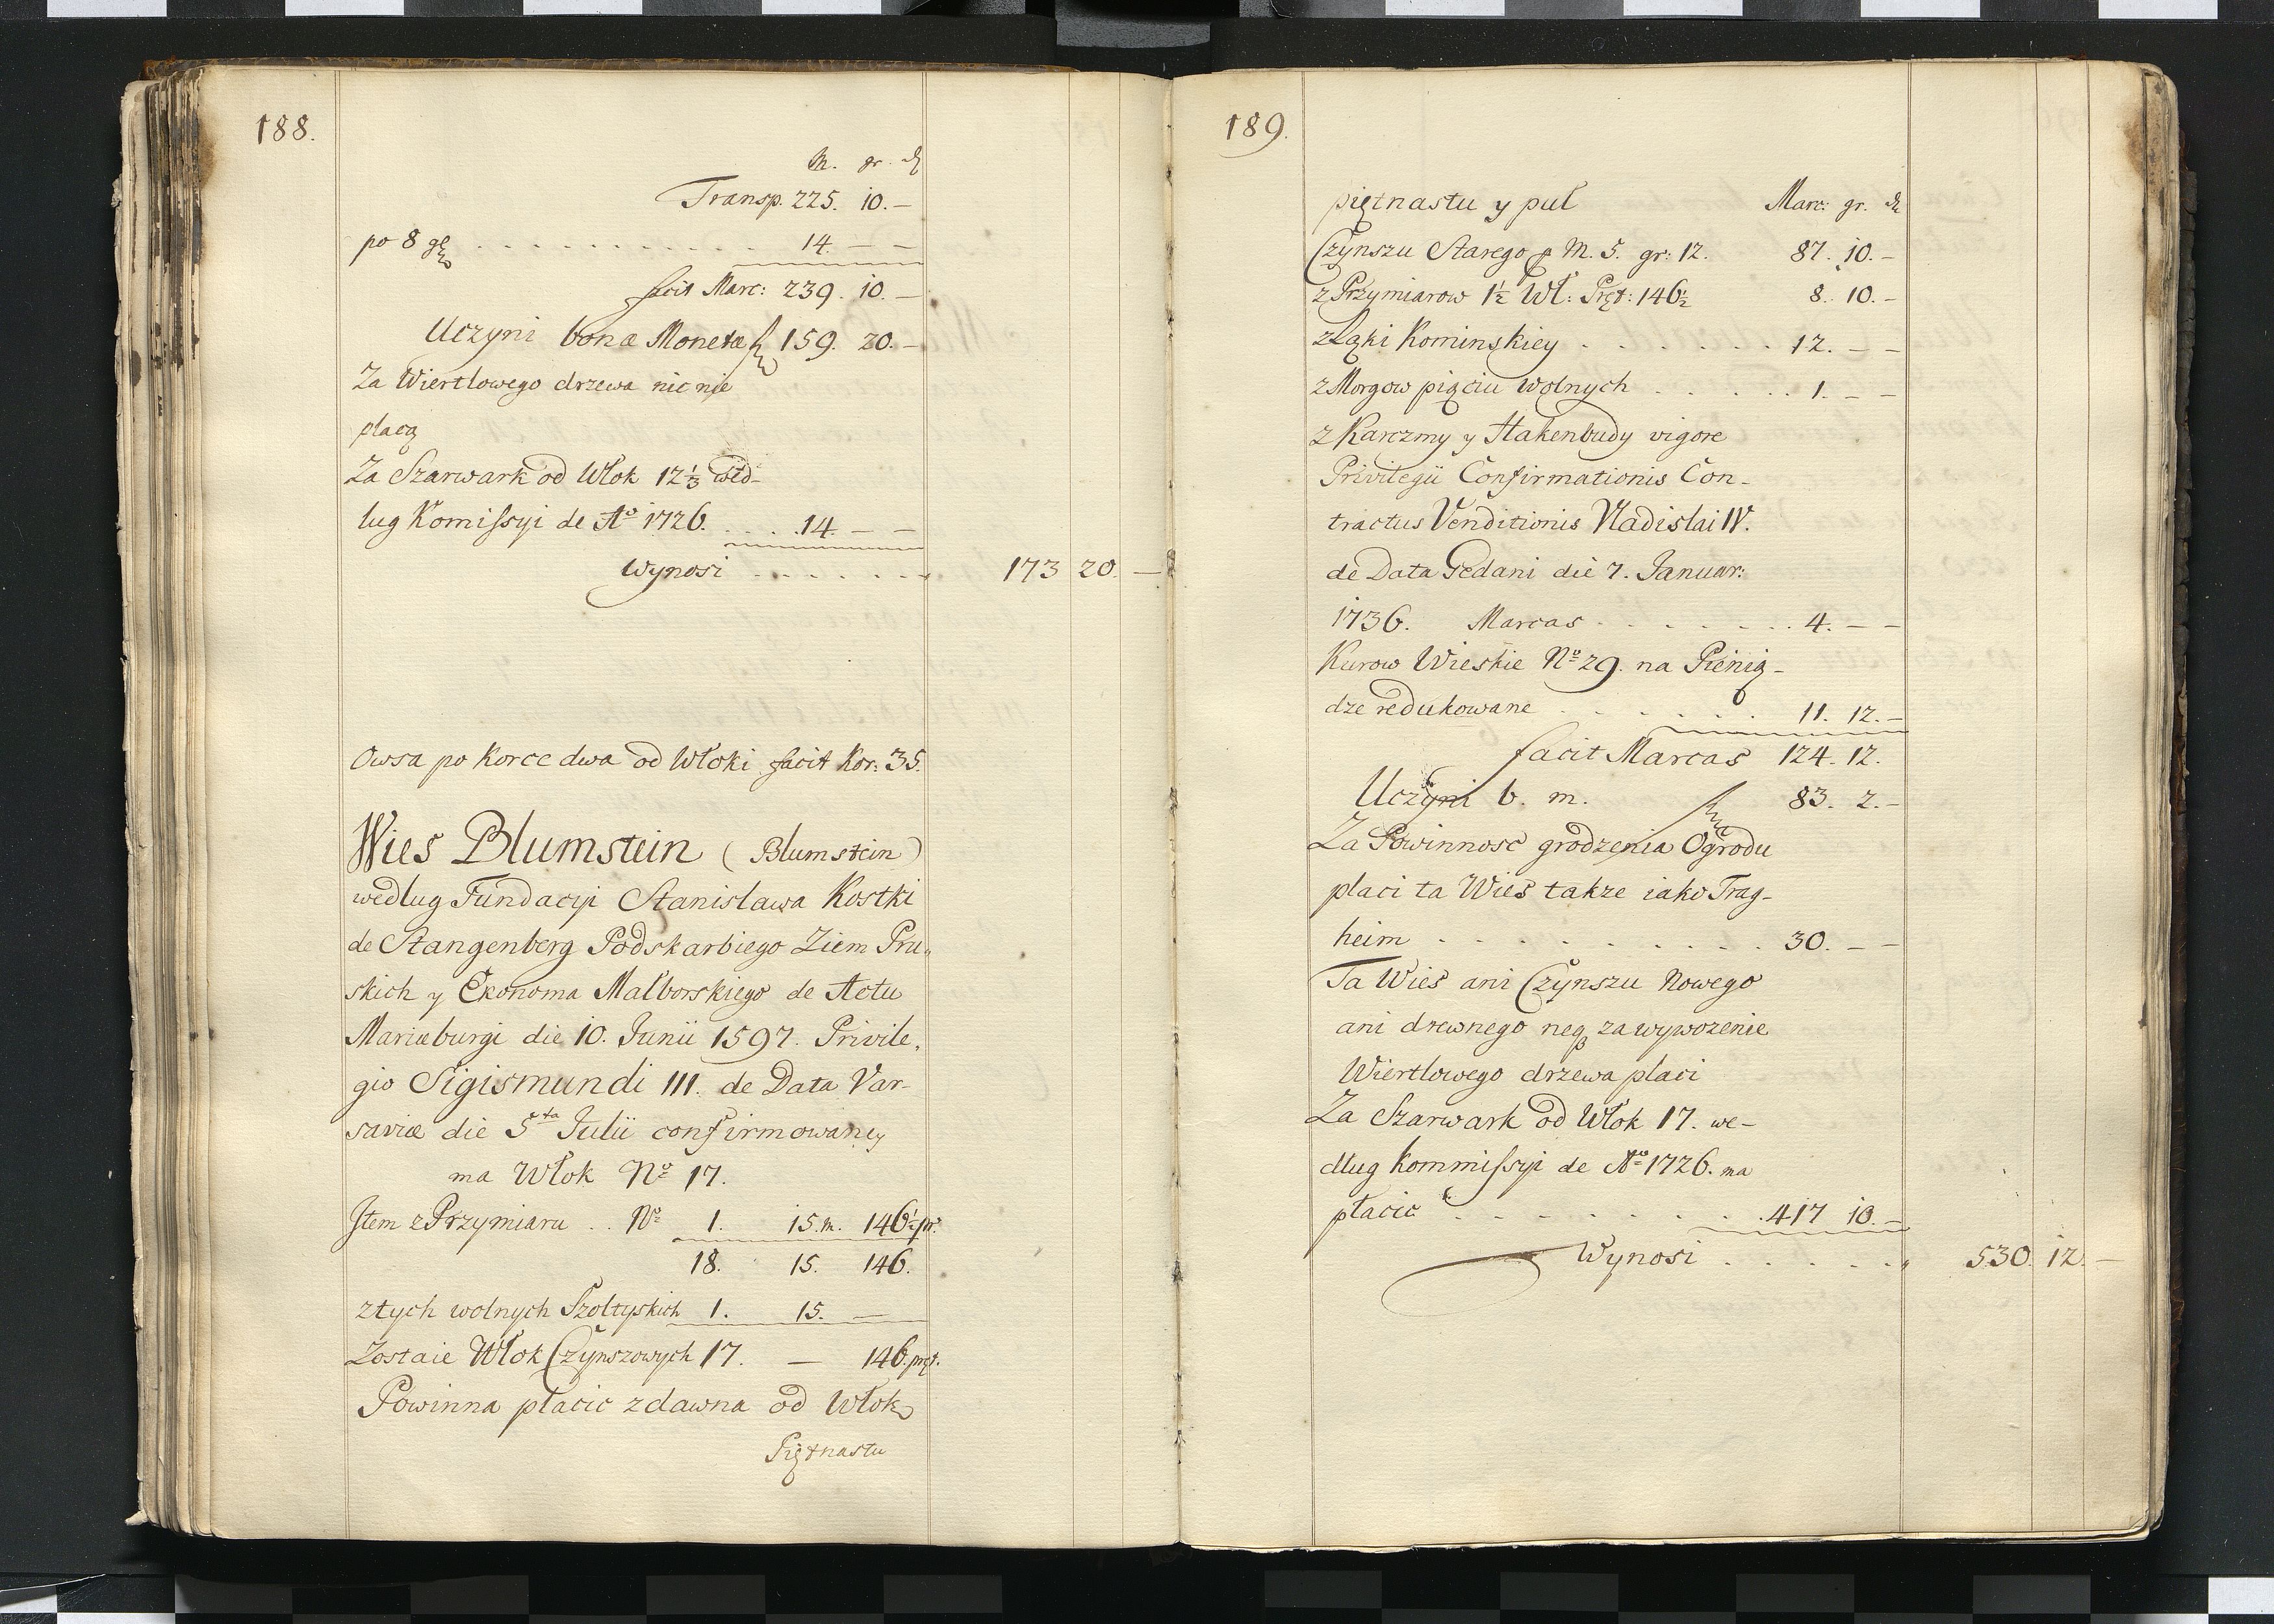 188.
M. gr. ₰
Transp. 225. 10. —
po 8 gl . . . . . . . . . . . 14. — —
facit Marc: 239. 10. —
Uczyni bonæ Monetæ 159. 20. —
Za Wiertlowego drzewa nic nie
placą
Za Szarwark od Włok 12 1/3 wed-
lug Komissyi de Aº 1726. . . . 14. — —
Wynosi . . . . . . . 173 20. —
Owsa po Korce dwa od Włoki facit Kor: 35.
Wies Blumstein (Blumstein)
według Fundacyi Stanisława Kostki
de Stangenberg Podskarbiego Ziem Pru-
skich y Ekonoma Malborskiego de Actu
Mariæburgi die 10. Junii 1597. Privile-
gio Sigismundi III. de Data Var-
saviæ die 5ta Julii confirmowaney
ma Włok Nº 17.
Item z Przymiaru . . Nº 1. 15. m. 146½ pr.
18. 15. 146.
z tych wolnych Szoltyskich 1. 15. —
Zostaie Włok Czynszowych 17. — 146. pręt.
Powinna płacic zdawna od Włok
Piętnastu
189.
piętnastu y puł Marc: gr. ₰
Czynszu Starego p M. 5. gr: 12. 87. 10. —
z Przymiarow 1½ Wł: Pręt: 146½ 8. 10. —
z Łąki Kominskiey . . . . . . . 12. — —
z Morgow pięciu wolnych . . . . . 1. — —
z Karczmy y Hakenbudy vigore
Privilegii Confirmationis Con-
tractus Venditionis Vladislai IV.
de Data Gedani die 7. Januar:
1736. Marcas . . . . . . . . 4. — —
Kurow Wieskie Nº 29. na Pienią-
dze redukowane . . . . . . 11. 12. —
facit Marcas 124. 12.
Uczyni b. m. 83. 2. —
Za Powinnosc grodzenia Ogrodu
placi ta Wies takze iako Trag-
heim . . . . . . . . . . 30. — —
Ta Wies ani Czynszu Nowego
ani drewnego neq za wywozenie
Wiertlowego drzewa placi
Za Szarwark od Włok 17. we-
dług Kommissyi de Aº 1726. ma
płacic . . . . . . . . . 417 10. —
Wynosi . . . . . . 530. 12. —